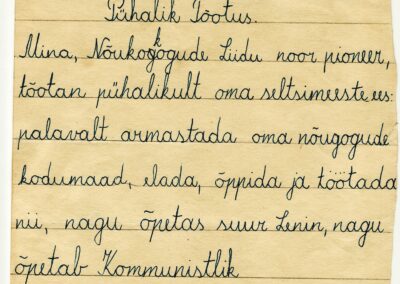 Pühalik Tõotus.
Mina, Nõukogkogude Liidu noor pioneer,
tõotan pühalikult oma seltsimeeste ees:
palavalt armastada oma nõugogude
kodumaad, elada, õppida ja töötada
nii, nagu õpetas suur Lenin, nagu
õpetab Kommunistlik